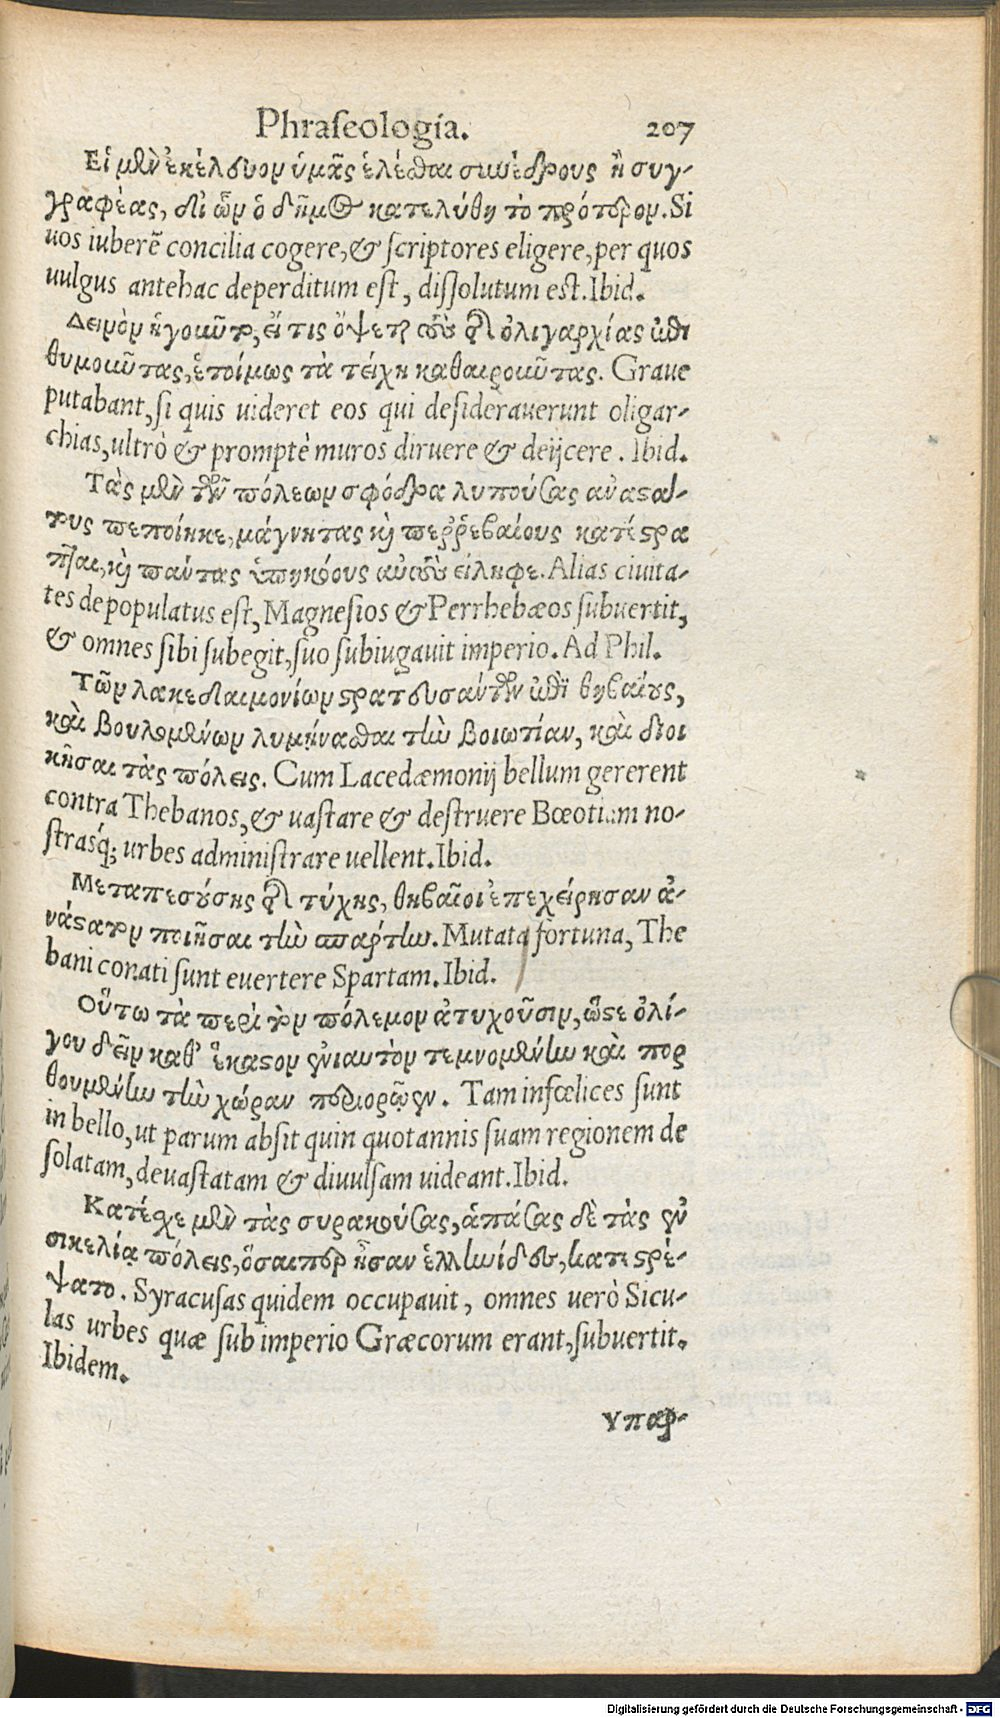 Phraſeologia. 207
Εἰ μὲν ἐκέλευον ὑμᾶς ἑλέσθαι συνέδρους ἢ συγ-
γραφέας, δι' ὧν ὁ δῆμος κατελύθη τὸ πρότερον. Si
uos iuberẽ concilia cogere, & ſcriptores eligere, per quos
uulgus antehac deperditum eſt, diſſolutum est. Ibid.
Δεινὸν ἡγοῦντο, εἴ τις ὄψεται τοὺς τῆς ὀλιγαρχίας ἐπι
θυμοῦντας, ἑτοίμως τὰ τείχη καθαιροῦντας. Graue
putabant, ſi quis uideret eos qui deſiderauerunt oligar-
chias, ultrò & promptè muros diruere & deijcere. Ibid.
Τὰς μὲν τῶν πόλεων σφόδρα λυπούσας ἀναστά-
τους πεποίηκε, μάγνητας καὶ περῤῥεβαίους κατέστρα
πται, καὶ πάντας ὑπηκόους αὐτοὺς εἴληφε. Alias ciuita-
tes depopulatus eſt, Magneſios & Perrhebæos ſubuertit,
& omnes ſibi ſubegit, ſuo ſubiugauit imperio. Ad Phil.
Τῶν λακεδαιμονίων στρατευσάντων ἐπὶ θηβαίους,
καὶ βουλομένων λυμήνασθαι τὴν βοιωτίαν, καὶ διοι
κῆσαι τὰς πόλεις. Cum Lacedæmonij bellum gererent
contra Thebanos, & uaſtare & deſtruere Bœotiam no-
ſtrasq́; urbes adminiſtrare uellent. Ibid.
Μεταπεσούσης τῆς τύχης, θηβαῖοι ἐπεχείρησαν ἀ-
νάστατον ποιῆσαι τὴν σπάρτην. Mutata fortuna, The
bani conati ſunt euertere Spartam. Ibid.
Οὕτω τὰ περὶ τὸν πόλεμον ἀτυχοῦσιν, ὥστε ὀλί-
γου δεῖν καθ' ἕκαστον ἐνιαυτὸν τεμνομένην καὶ πορ
θουμένην τὴν χώραν περιορῷεν. Tam infœlices ſunt
in bello, ut parum abſit quin quotannis ſuam regionem de
ſolatam, deuaſtatam & diuulſam uideant. Ibid.
Κατέσχε μὲν τὰς συρακούσας, ἁπάσας δὲ τὰς ἐν
σικελίᾳ πόλεις, ὅσαιπερ ἦσαν ἑλληνίδες, κατεστρέ-
ψατο. Syracuſas quidem occupauit, omnes uerò Sicu-
las urbes quæ ſub imperio Græcorum erant, ſubuertit.
Ibidem.
Υπαρ-
Digitalisierung gefördert durch die Deutsche Forschungsgemeinschaft - DFG